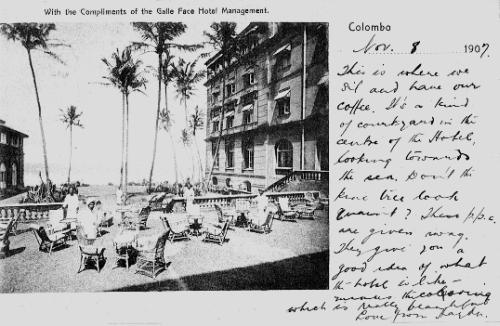 With the Compliments of the Galle Face Hotel Management.
Colombo
Nov. 8 1907
This is where we
sit and have our
coffee. It's a kind
of courtyard in the
centre of the Hotel,
looking towards
the sea. Don't the
tree look
quaint? These p.p.c.
are given away.
They give you a
good idea of what
the hotel is like
minus the colouring
which is really beautiful
Love from